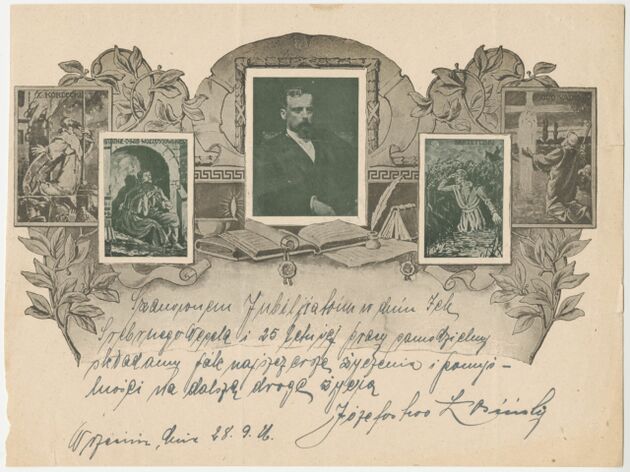 X. KORDECKI
Szanownem Jubilatom w dniu Ich
Srebrnego Wesela i 25 letniej pracy samodzielnej
składamy jak najszczersze życzenia i pomyśl-
ności na dalszą drogę życia
Józefostwo
Września, dnia 28. 9. 26.